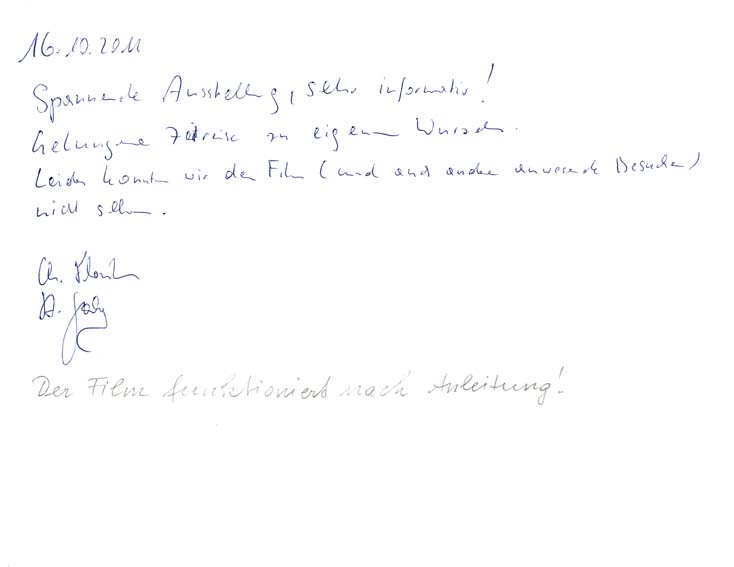 16.10.2011
Spannende Ausstellung, sehr informativ!
Gelungene Zeitreise zu eigenen Wurzeln.
Leider konnten wir den Film (und auch andere anwesende Besucher)
nicht sehen.
Ch.
A.
Der Film funktioniert nach Anleitung!